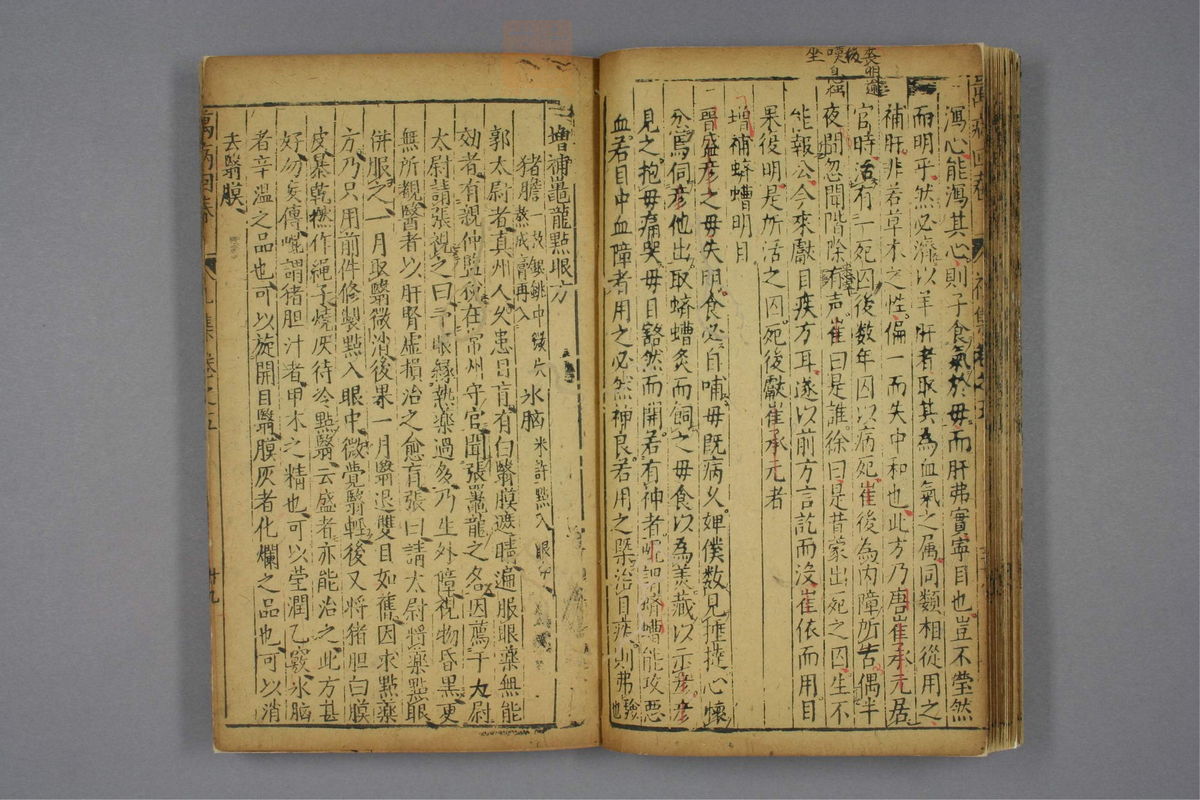 喪明逾
後
嘆息獨
坐
瀉心能瀉其心則子食氣於母而肝弗實寧目也豈不瑩然
而明乎然必濟以羊肝者取其為血氣之属同類相從用之
補肝非若草木之性偏一而失中和也此方乃唐崔承元居
官時活有一死囚後数年囚以病死崔後為内障所苦偶半
夜間忽聞階除有声崔曰是誰徐曰是昔蒙出死之囚生不
能報公今來獻目疾方耳遂以前方言訖而沒崔依而用目
果復明是所活之囚死後獻崔承元者
增補蠐螬明目
晉盛彦之母失明食必自哺母既病久婢僕数見捶撻心懷
忿焉伺彦他出取蠐螬炙而飼之母食以為羙藏以示彦彦
見之抱母痛哭母目豁然而開若有神者昵謂蠐螬能攻惡
血若目中血障者用之必然神良若用之槩治目疾則弗驗也
增補鼉龍點眼方
猪膽一枚銀銚中鎔片熬成膏再入 氷脳米許點入眼中
郭太尉者真州人久患目盲有白翳膜遮晴遍服眼藥無能
効者有親仲監稅在常州守官聞張鼉龍之名因薦于太尉
太尉請張視之曰予眼緣熱藥過多乃生外障視物昏黑更
無所覩醫者以肝腎虛損治之愈盲張曰請太尉將藥點眼
併服之一月取翳微消後果一月翳退雙目如舊因求點藥
方乃只用前件修製點入眼中微覺翳輕後又將猪胆白膜
皮暴乾撚作繩子燒灰待冷點翳云盛者亦能治之此方甚
好勿妄傳崐謂猪胆汁者甲木之精也可以瑩潤乙竅氷脳
者辛溫之品也可以旋開目翳膜灰者化爛之品也可以消
去翳膜